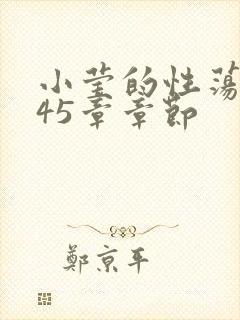 小莹的性荡
45章章节
郑京平